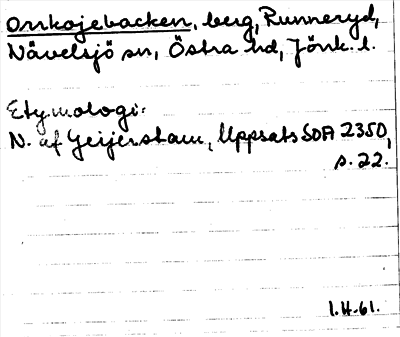 Orrkojebacken, berg, Runneryd,
Nävelsjö sn, Östra hd, Jönk. l.
Etymologi:
N. af Geijerstam, Uppsats SOA 2350,
s. 22.
1.4.61.